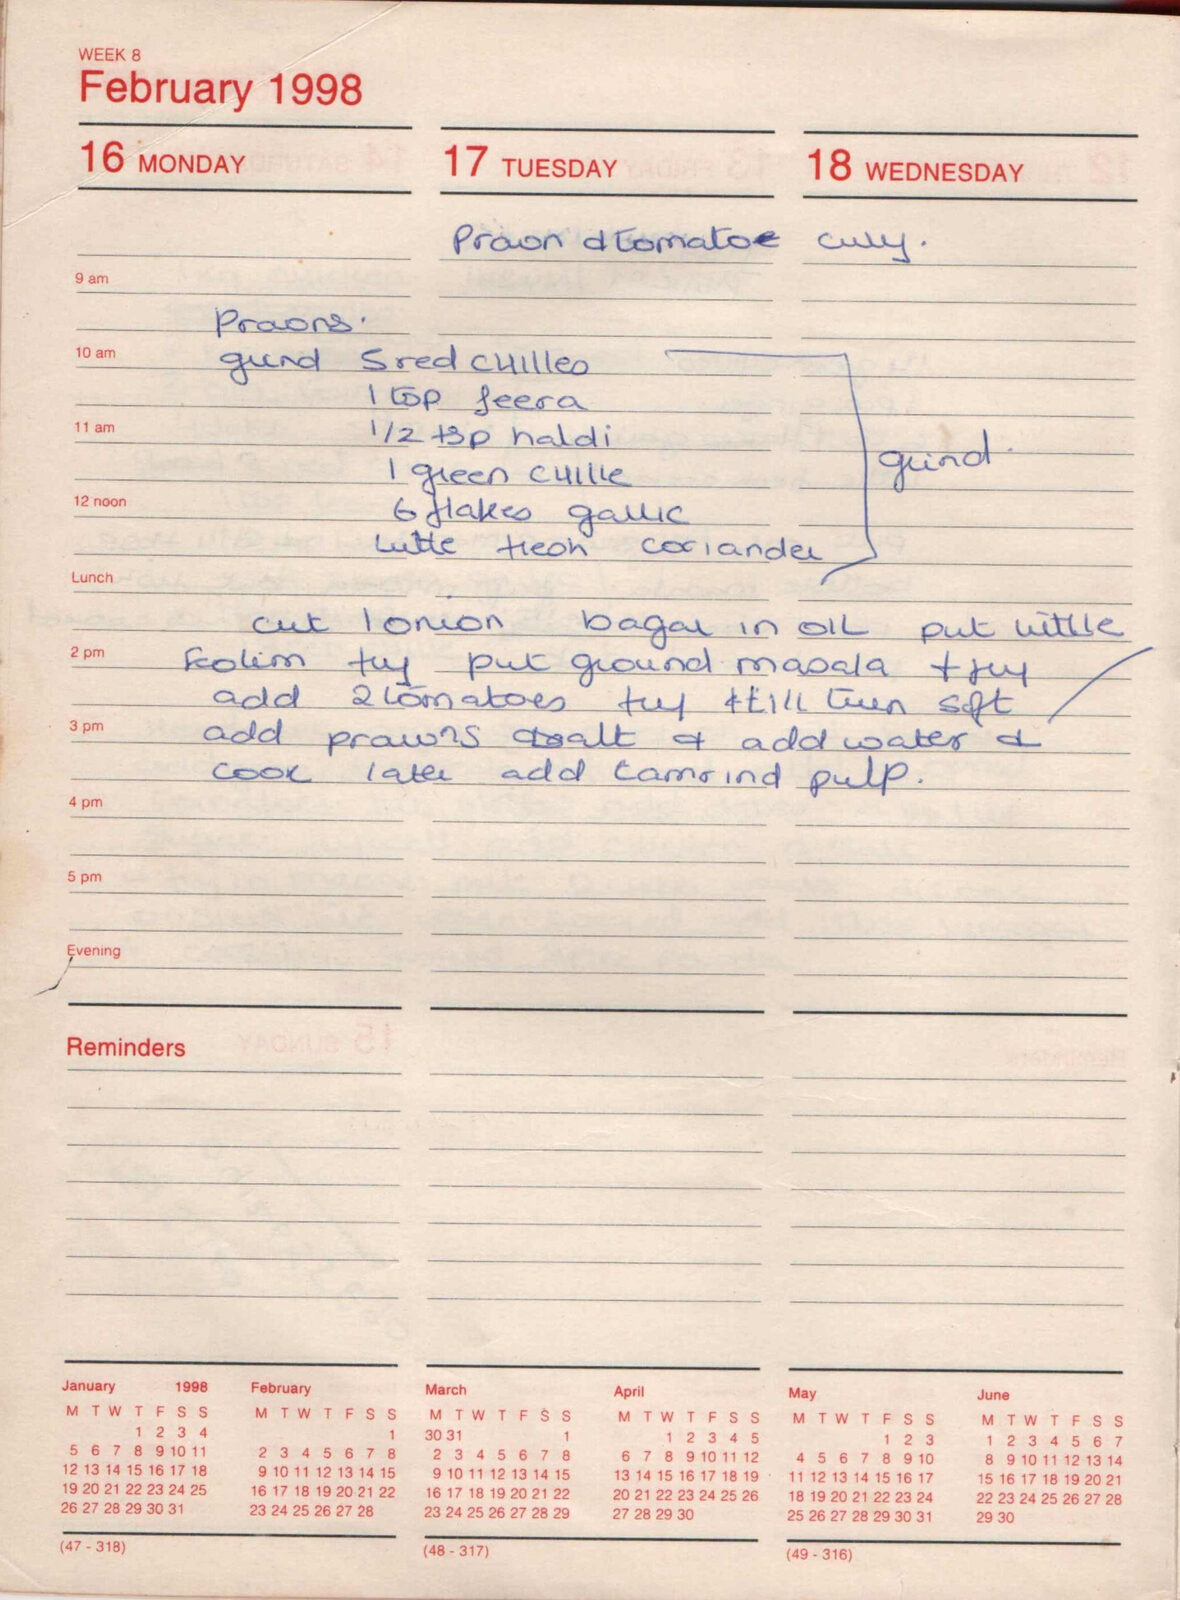 WEEK 8
February 1998
16 MONDAY
17 TUESDAY
18 WEDNESDAY
Prawn & tomatoe curry.
9 am
Prawns.
10 am
grind 5 red chilles
1 tsp jeera
11 am
1/2 tsp haldi
grind.
1 green chille
12 noon
6 flakes garlic
little fresh coriander
Lunch
cut 1 onion bagar in oil put little
2 pm
fry put ground masala + fry
add 2 tomatoes fry till turn soft
3 pm
add prawns salt & add water &
cook later add tamrind pulp.
4 pm
5 pm
Evening
Reminders
January 1998
M T W T F S S
1 2 3 4
5 6 7 8 9 10 11
12 13 14 15 16 17 18
19 20 21 22 23 24 25
26 27 28 29 30 31
February
M T W T F S S
1
2 3 4 5 6 7 8
9 10 11 12 13 14 15
16 17 18 19 20 21 22
23 24 25 26 27 28
March
M T W T F S S
30 31 1
2 3 4 5 6 7 8
9 10 11 12 13 14 15
16 17 18 19 20 21 22
23 24 25 26 27 28 29
April
M T W T F S S
1 2 3 4 5
6 7 8 9 10 11 12
13 14 15 16 17 18 19
20 21 22 23 24 25 26
27 28 29 30
May
M T W T F S S
1 2 3
4 5 6 7 8 9 10
11 12 13 14 15 16 17
18 19 20 21 22 23 24
25 26 27 28 29 30 31
June
M T W T F S S
1 2 3 4 5 6 7
8 9 10 11 12 13 14
15 16 17 18 19 20 21
22 23 24 25 26 27 28
29 30
(47 - 318)
(48 - 317)
(49 - 316)